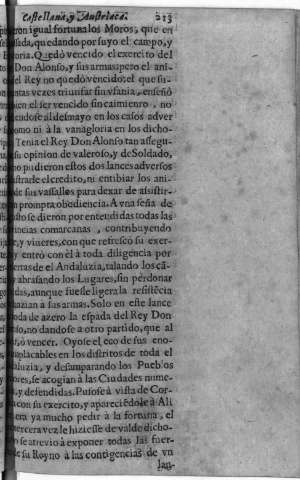 Castellana, y Austriaca. 213
igual fortuna los Moros, que en
quedando por suyo el campo, y
Quedó vencido el exercito del
Don Alonso, y sus armas; pero el ani-
del Rey no quedó vencido: el que su-
tantas vezes triunfar sin vfania, enseñó
bien el ser vencido sin caimiento, no
al desmayo en los casos adver
como ni à la vanagloria en los dicho-
Tenia el Rey Don Alonso tan assegu-
su opinion de valeroso, y de Soldado,
no pudieron estos dos lances adversos
el credito, ni entibiar los ani-
de sus vassallos para dexar de assistir-
prompta obediencia. A vna seña de
se dieron por entendidas todas las
comarcanas, contribuyendo
y viveres, con que refrescó su exer-
y entró con él à toda diligencia por
de el Andaluzia, talando los cã-
y abrasando los Lugares, sin perdonar
aunque fuesse ligera la resistẽcia
hazian à sus armas. Solo en este lance
toda de azero la espada del Rey Don
no dandose à otro partido, que al
ò vencer. Oyose el eco de sus eno-
implacables en los distritos de toda el
y desamparando los Pueblos
se acogian à las Ciudades nume-
y defendidas. Pusose à vista de Cor-
con su exercito, y pareciẽdole à Ali
era ya mucho pedir à la fortuna, el
tercera vez le hiziesse de valde dicho-
se atrevió à exponer todas las fuer-
de su Reyno à las contigencias de vn
lan-